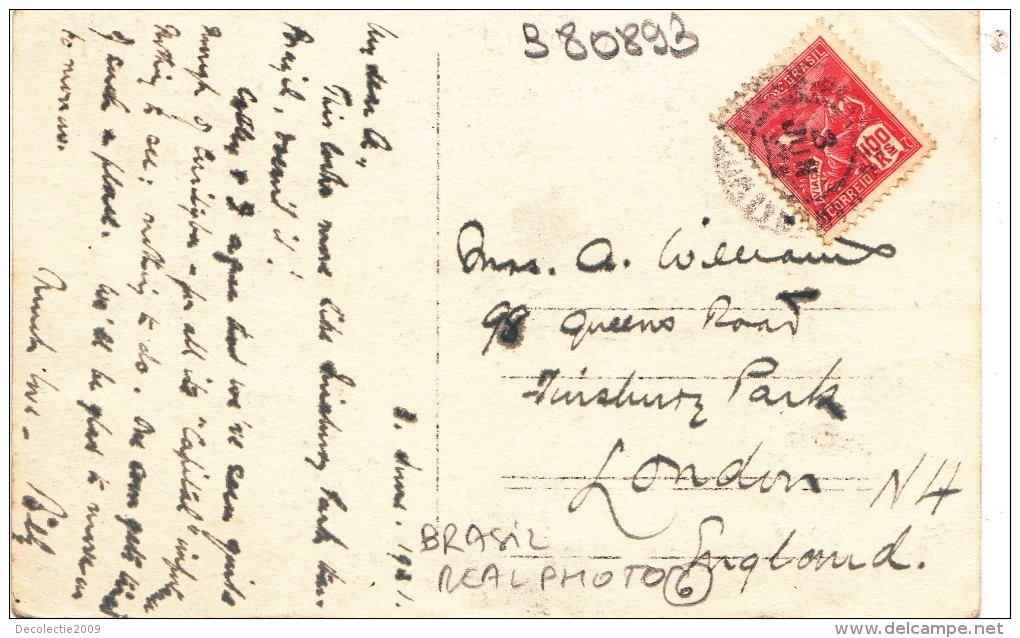 S80893
BRASIL
AVIAÇÃO
CORREIO
400 Rs
8 JUN
8. June. 1931.
My dear A.,
This looks more like Finsbury Park than
Brazil, doesn't it!
& I agree that we've seen quite
enough of Curityba - for all its "Capital"
Nothing to see; nothing to do. One soon gets tired
of such a place. We'll be glad to move on
tomorrow.
Much love -
Mrs. A. Williams
98 Queens Road
Finsbury Park
London N4
England.
BRASIL
REAL PHOTO 6
Decolectie2009
delcampe.net